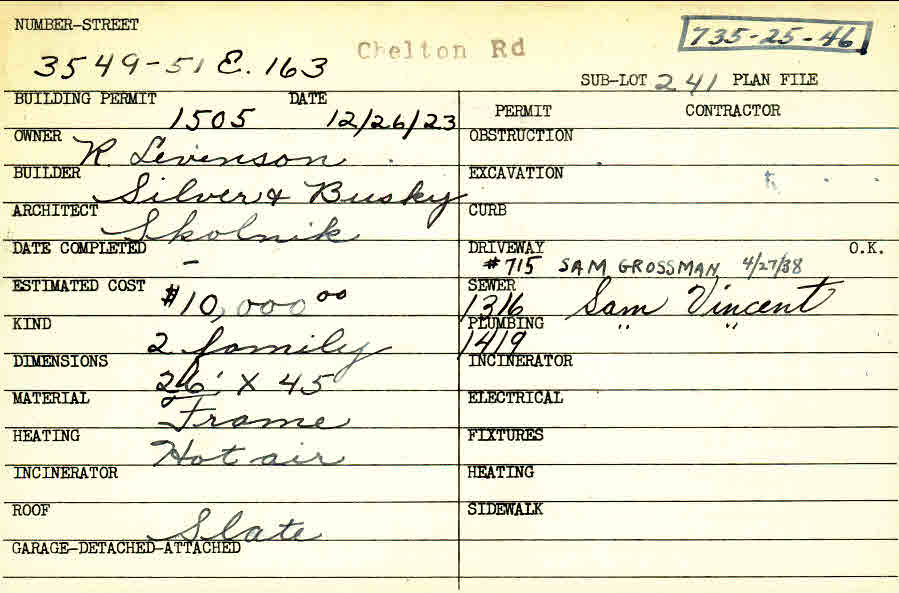 NUMBER-STREET
Chelton Rd
735-25-46
3549-51 E. 163
SUB-LOT 241 PLAN FILE
BUILDING PERMIT DATE
1505 12/26/23
PERMIT CONTRACTOR
OWNER R. Levenson
OBSTRUCTION
BUILDER Silver & Busky
EXCAVATION
ARCHITECT Skolnik
CURB
DATE COMPLETED –
DRIVEWAY O.K.
#715 SAM GROSSMAN 4/27/38
ESTIMATED COST $10,000 00
SEWER
1316 Sam Vincent
KIND 2 family
PLUMBING " "
1419
DIMENSIONS 26' X 45
INCINERATOR
MATERIAL Frame
ELECTRICAL
HEATING Hot air
FIXTURES
INCINERATOR
HEATING
ROOF Slate
SIDEWALK
GARAGE-DETACHED-ATTACHED